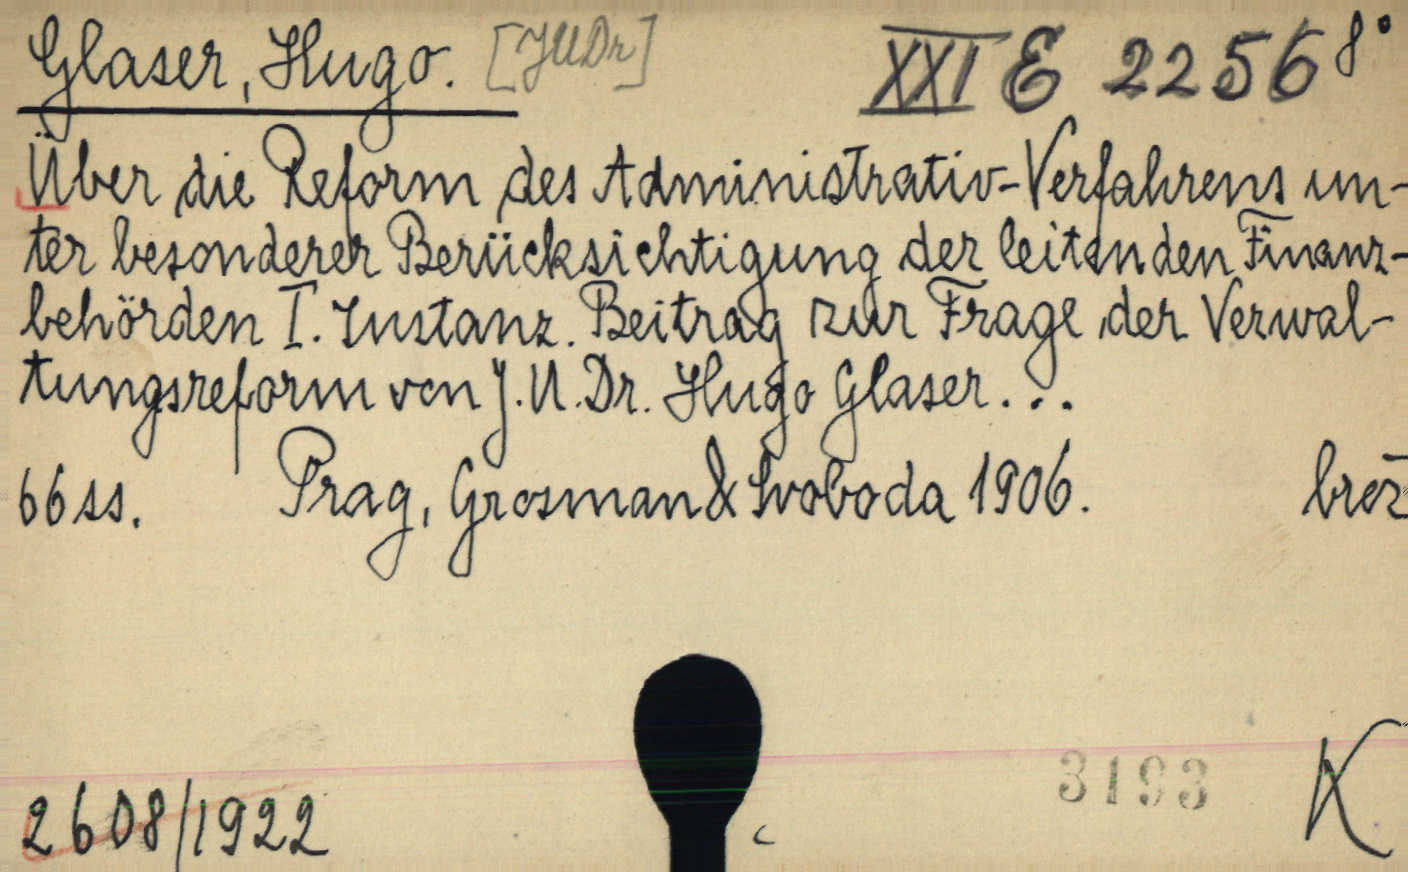 Glaser, Hugo. [JUDr] XXI E 2256 8°
Über die Reform des Administrativ-Verfahrens un-
ter besonderer Berücksichtigung der leitenden Finanz-
behörden I. Instanz. Beitrag zur Frage der Verwal-
tungsreform von J.U.Dr. Hugo Glaser...
66 ss. Prag, Grosman & Svoboda 1906. brož
3193 K
2608/1922